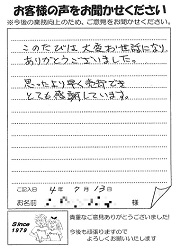 お客様の声をお聞かせください
※今後の業務向上のため、ご意見をお聞かせください。
このたびは大変お世話になり
ありがとうございました。
思ったより早く売却でき
とても感謝しています。
ご記入日 4年 9月 13日
お名前 様
Since
1979
貴重なご意見ありがとうございます!
今後も頑張りますので
よろしくお願いいたします